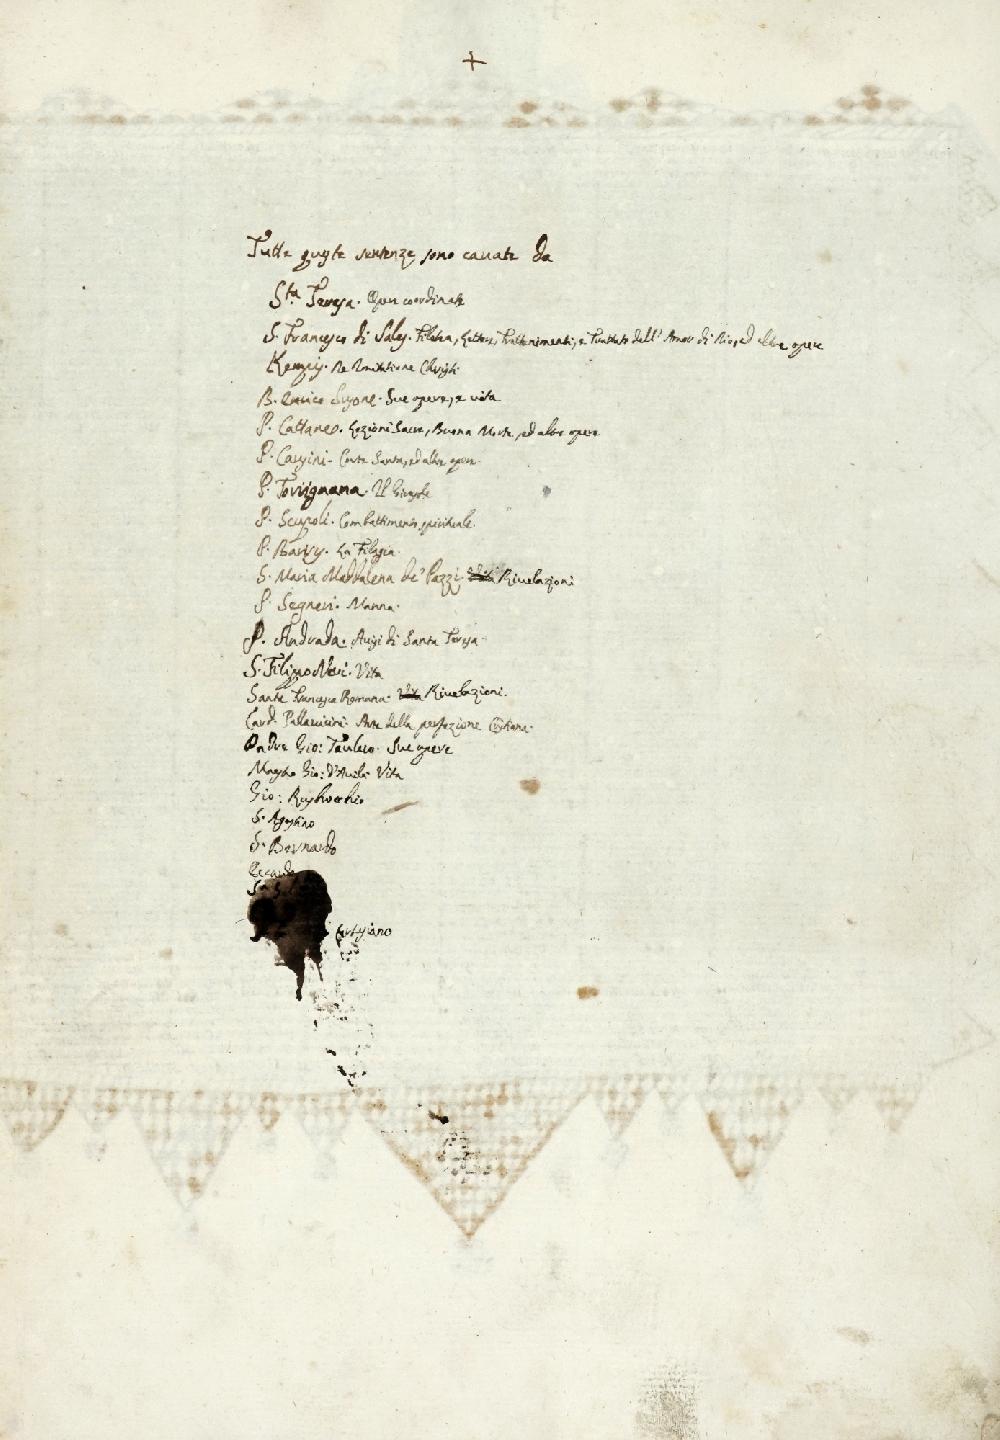 +
Tutte queste sentenze sono cavate da
S.ta Teresa. Opere coordinate
S. Francesco di Sales. Filotea, Lettere, Trattenimenti, e Trattato dell' Amor di Dio, ed altre opere
Kempis. De Imitatione Christi
B. Enrico Susone. Sue opere, e vita
P. Cattaneo. Lezioni Sacre, Buona Morte, ed altre opere
P. Causini. Corte Santa, ed altre opere.
P. Torrignana. Il
P. Scupoli. Combattimento spirituale.
P. Barry. La Filagia.
S. Maria Maddalena de' Pazzi Vita Rivelazioni
P. Segneri. Manna.
P. Andrada. Avisi di Santa Teresa
S. Filippo Neri. Vita
Santa Francesca Romana. Vita Rivelazioni.
Card. Pallavicini. Arte della perfezione Cristiana.
Padre Gio: Taulero. Sue opere
Maestro Gio: d'Avila Vita
Gio: Rusbrochio
S. Agostino
S. Bernardo
Cartusiano